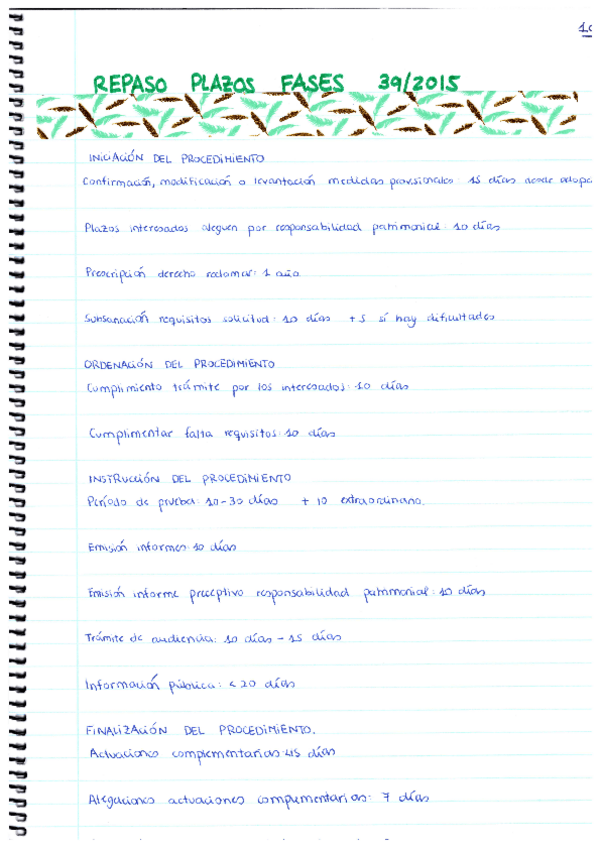 REPASO PLAZOS FASES 39/2015
INICIACIÓN DEL PROCEDIMIENTO
Confirmación, modificación o levantación medidas provisionales: 15 días desde
Plazos interesados aleguen por responsabilidad patrimonial: 10 días
Prescripción derecho reclamar: 1 año
Subsanación requisitos solicitud: 10 días +5 si hay dificultades
ORDENACIÓN DEL PROCEDIMIENTO
Cumplimiento trámite por los interesados: 10 días
Cumplimentar falta requisitos: 10 días
INSTRUCCIÓN DEL PROCEDIMIENTO
Período de prueba: 10-30 días + 10 extraordinario.
Emisión informes: 10 días
Emisión informe preceptivo responsabilidad patrimonial: 10 días
Trámite de audiencia: 10 días - 15 días
Información pública: < 20 días
FINALIZACIÓN DEL PROCEDIMIENTO.
Actuaciones complementarias: 15 días
Alegaciones actuaciones complementarias: 7 días